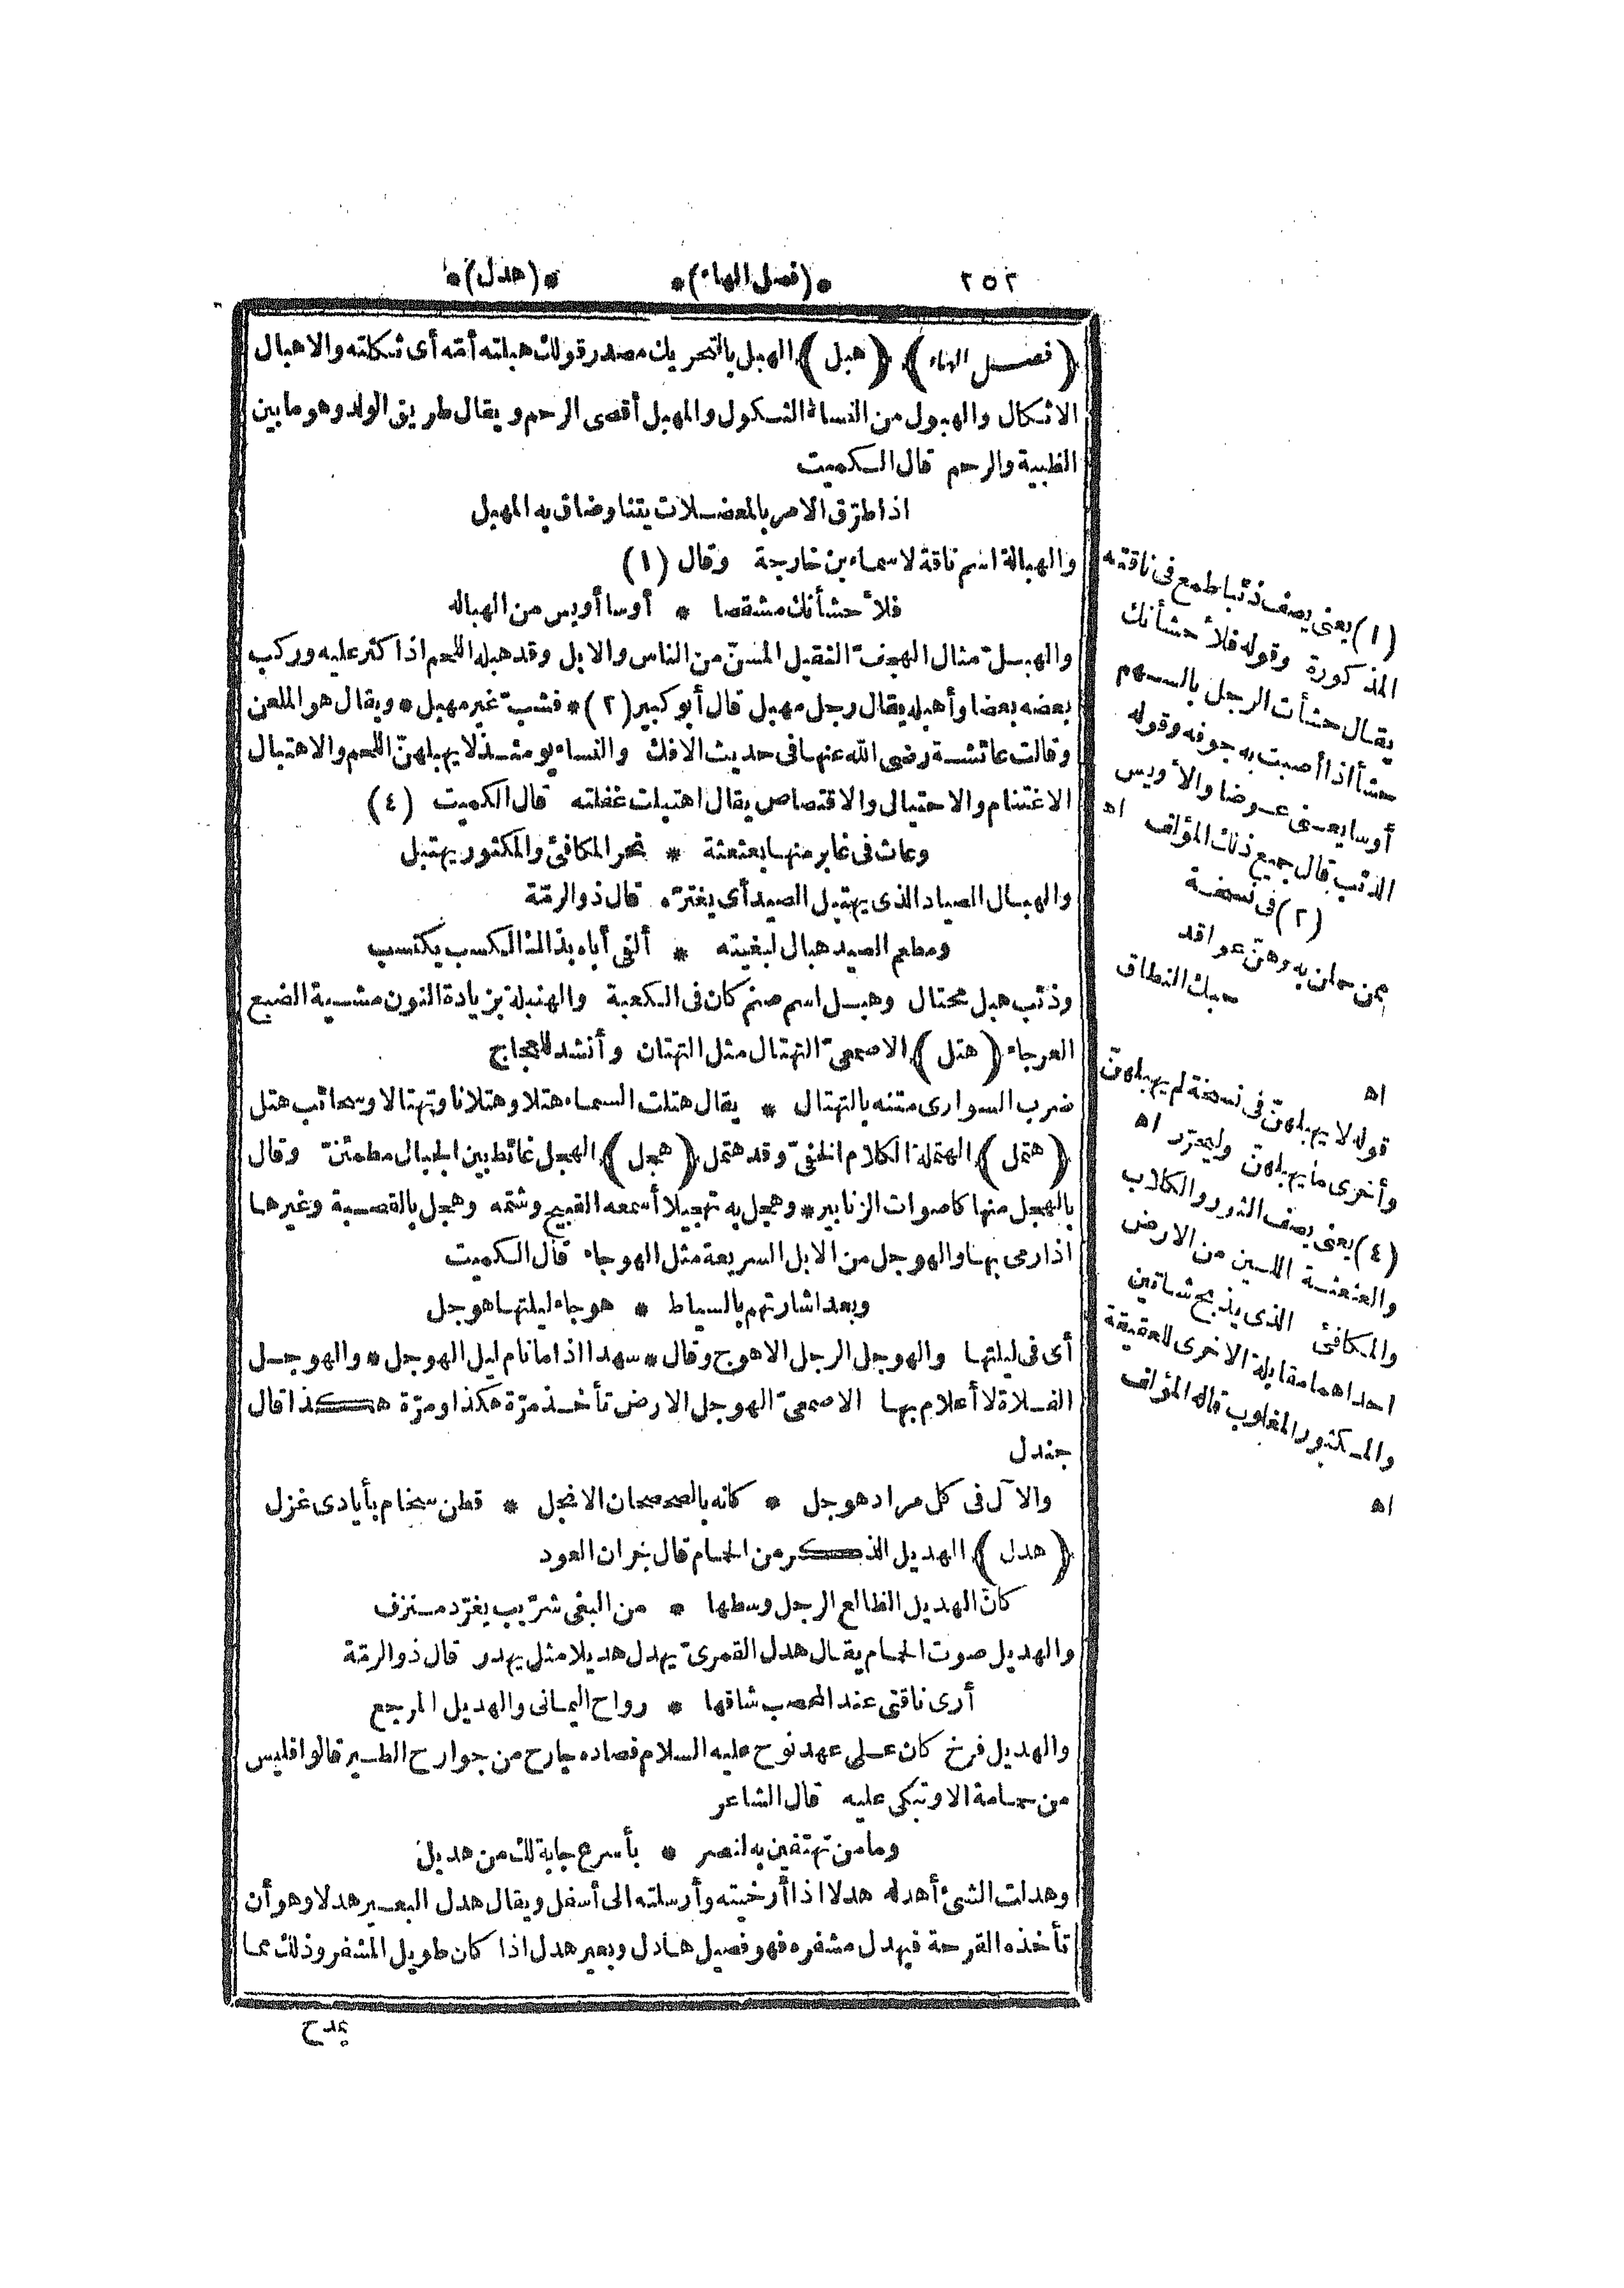 ٢٥٢ *(فصل الهاء)* *(هدل)*
(فصل الهاء) (هبل) الهبل بالتحريك مصدر قولك هبلته أمّه أى ثكلته والاهبال
الاثكال والهبول من النساء الثكول والمهبل أقصى الرحم ويقال طريق الولد وهو ما بين
الظبية والرحم قال الكميت
اذا طرّق الامر بالمعضلات يتنا وضاق به المهبل
والهبالة اسم ناقة لاسماء بن خارجة وقال (١)
فلأحشأنك مشقصا * أوسا أويس من الهباله
والهبلّ مثال الهجفّ الثقيل المسنّ من الناس والابل وقد هبله اللحم اذا كثر عليه وركب
بعضه بعضا وأهبله يقال رجل مهبل قال أبو كبير (٢) * فشبّ غير مهبل * ويقال هو الملعن
وقالت عائشة رضى الله عنها فى حديث الافك والنساء يومئذ لا يهبلهنّ اللحم والاهتبال
الاغتنام والاحتيال والاقتصاص يقال اهتبلت غفلته قال الكميت (٤)
وعاث فى غابر منها بعثعثة * نحر المكافئ والمكثور يهتبل
والهبال الصياد الذى يهتبل الصيد أى يغترّه قال ذو الرمّة
ومطعم الصيد هبال لبغيته * ألفى أباه بذالك الكسب يكتسب
وذئب هبل محتال وهبل اسم صنم كان فى الكعبة والهنبلة بزيادة النون مشية الضبع
العرجاء (هتل) الاصمعىّ التهتال مثل التهتان وأنشد للعجاج
ضرب السوارى متنه بالتهتال * يقال هتلت السماء هتلا وهتلانا وتهتالا وسحائب هتل
(هتمل) الهتملة الكلام الخفىّ وقد هتمل (هجل) الهجل غائط بين الجبال مطمئنّ وقال
بالهجل منها كاصوات الزنابير * وهجل به تهجيلا أسمعه القبيح وشتمه وهجل بالقصبة وغيرها
اذا رمى بها والهوجل من الابل السريعة مثل الهوجاء قال الكميت
وبعد اشارتهم بالسياط * هوجاء ليلتها هوجل
أى فى ليلتها والهوجل الرجل الاهوج وقال * سهدا اذا ما نام ليل الهوجل * والهوجل
الفلاة لا أعلام بها الاصمعىّ الهوجل الارض تأخذ مرّة هكذا ومرّة هكذا قال
جندل
والآل فى كل مراد هوجل * كانه بالصحصحان الانجل * قطن سخام بأيادى غزل
(هدل) الهديل الذكر من الحمام قال جران العود
كانّ الهديل الظالع الرجل وسطها * من البغى شرّيب يغرّد منزف
والهديل صوت الحمام يقال هدل القمرىّ يهدل هديلا مثل يهدر قال ذو الرمّة
أرى ناقتى عند المحصب شاقها * رواح اليمانى والهديل المرجع
والهديل فرخ كان على عهد نوح عليه السلام فصاده جارح من جوارح الطير قالوا فليس
من حمامة الا وتبكى عليه قال الشاعر
وما من تهتفين به لنصر * بأسرع جابة لك من هديل
وهدلت الشئ أهدله هدلا اذا أرخيته وأرسلته الى أسفل ويقال هدل البعير هدلا وهو أن
تأخذه القرحة فيهدل مشفره فهو فصيل هادل وبعير هدل اذا كان طويل المشفر وذلك مما
يمدح
(١) يعنى يصف ذئبا طمع فى ناقته
المذكورة وقوله فلأحشأنك
يقال حشأت الرجل بالسهم
حشأ اذا أصبت به جوفه وقوله
أوسا يعنى عوضا والأويس
الذئب قال جميع ذلك المؤلف اه
(٢) فى نسخة
ممن حملن به وهنّ عواقد
حبك النطاق
اه
قوله لا يهبلهنّ فى نسخة لم يهبلهنّ
وأخرى ما يهبلهنّ وليحرّر اه
(٤) يعنى يصف الثور والكلاب
والعثعثة اللين من الارض
والمكافئ الذى يذبح شاتين
احداهما مقابلة الاخرى للعقيقة
والمكثور المغلوب قاله المؤلف
اه